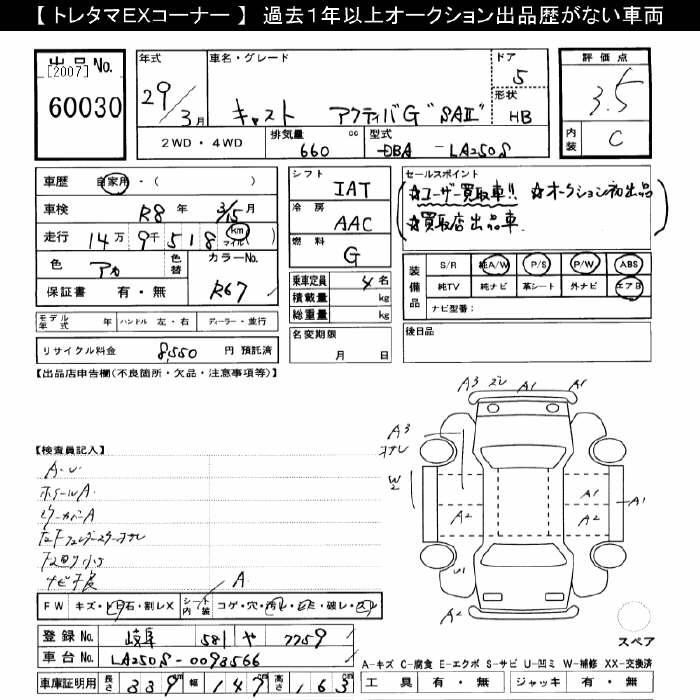 【 トレタマEXコーナー 】 過去１年以上オークション出品歴がない車両
出品No.
[2007]
60030
年式
29/3月
車名・グレード
キャスト アクティバG "SAⅡ"
ドア
5
形状
HB
2WD・4WD
排気量
660 cc
型式
DBA - LA250S
評価点
3.5
内装
C
車歴 自家用・( )
車検 R8年 3/15月
走行 14万 9千 518 km マイル( )
色 アカ 色替
カラーNo.
R67
保証書 有・無
モデル年式 年 ハンドル 左・右 ディーラー・並行
リサイクル料金 8,550 円 預託済
シフト IAT
冷房 AAC
燃料 G
乗車定員 4 名
積載量 kg
総重量 kg
名変期限
月 日
セールスポイント
☆ユーザー買取車!! ☆オークション初出品
☆買取店出品車
装備品
S/R 純A/W P/S P/W ABS
純TV 純ナビ 革シート 外ナビ エアB
ナビ型番:
後日品
【出品店申告欄(不良箇所・欠品・注意事項等)】
A3 ズレ A1 A1
A3
W2
A2
A1
A2
A1
U1
A2
スペア
【検査員記入】
A・U
ホイールA
A
FW キズ・ヒビ石・割レX
シート内装 コゲ・穴・汚レ・
破レ・
登録No. 岐阜 581 や 7759
車台No. LA250S-0093566
車庫証明用 長さ 339 幅 147 高さ 163
A-キズ C-腐食 E-エクボ S-サビ U-凹ミ W-補修 XX-交換済
工具 有・無 ジャッキ 有・無